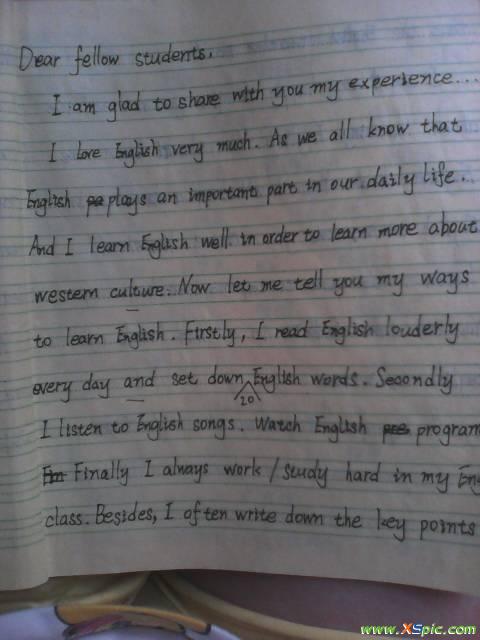 Dear fellow students.
I am glad to share with you my experience...
I love English very much. As we all know that
English plays an important part in our daily life.
And I learn English well in order to learn more about
western culture. Now let me tell you my ways
to learn English. Firstly, I read English louderly
every day and set down 20 English words. Secondly
I listen to English songs. Watch English program
Finally I always work / study hard in my En
class. Besides, I often write down the key points
www.XSpic.com